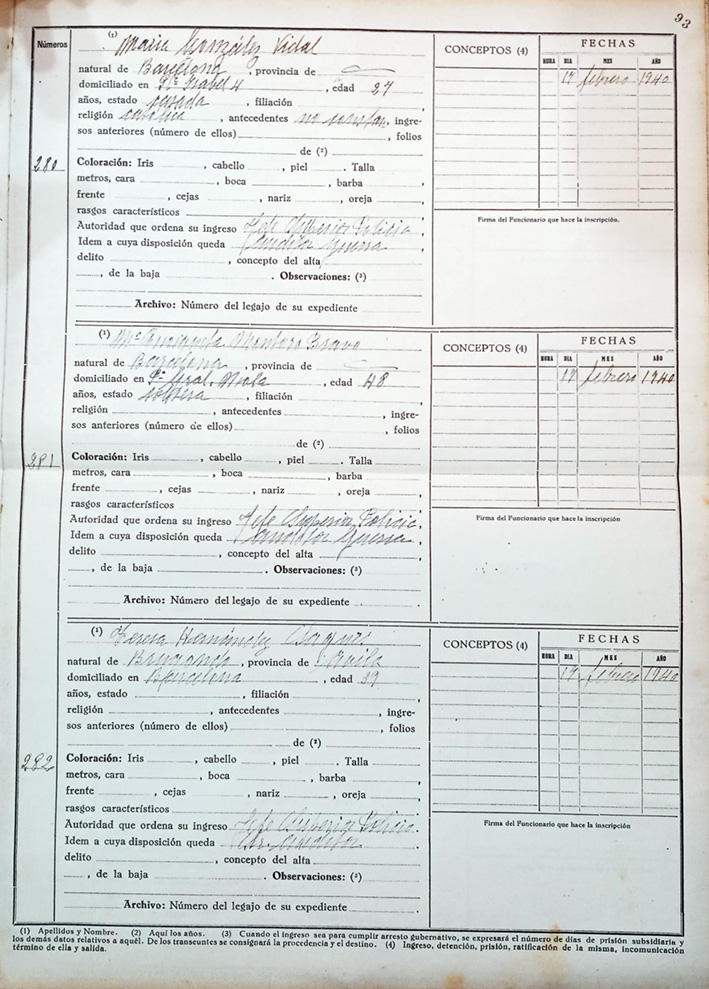 93
Números
(1) Maria González Vidal
natural de Barcelona, provincia de
domiciliado en Sta Isabel 4, edad 27
años, estado casada, filiación ,
religión católica, antecedentes no constan, ingre-
sos anteriores (número de ellos) , folios
de (2)
280
Coloración: Iris , cabello , piel . Talla
metros, cara , boca , barba ,
frente , cejas , nariz , oreja ,
rasgos característicos
Autoridad que ordena su ingreso Jefe Superior Policia,
Idem a cuya disposición queda Auditor Guerra,
delito , concepto del alta
, de la baja . Observaciones: (3)
Archivo: Número del legajo de su expediente
CONCEPTOS (4)
FECHAS
HORA DIA MES AÑO
17 febrero 1940
Firma del Funcionario que hace la inscripción.
(1) Mª Montoro Bravo
natural de Barcelona, provincia de
domiciliado en Gral. Mola, edad 48
años, estado soltera, filiación ,
religión , antecedentes , ingre-
sos anteriores (número de ellos) , folios
de (2)
281
Coloración: Iris , cabello , piel . Talla
metros, cara , boca , barba ,
frente , cejas , nariz , oreja ,
rasgos característicos
Autoridad que ordena su ingreso Jefe Superior Policia,
Idem a cuya disposición queda Auditor Guerra,
delito , concepto del alta ,
, de la baja . Observaciones: (3)
Archivo: Número del legajo de su expediente
CONCEPTOS (4)
FECHAS
HORA DIA MES AÑO
17 febrero 1940
Firma del Funcionario que hace la inscripción
(1) Teresa Hernández
natural de , provincia de Avila
domiciliado en Barcelona, edad 39
años, estado , filiación ,
religión , antecedentes , ingre-
sos anteriores (número de ellos) , folios
de (2)
282
Coloración: Iris , cabello , piel . Talla
metros, cara , boca , barba ,
frente , cejas , nariz , oreja ,
rasgos característicos
Autoridad que ordena su ingreso Jefe Superior Policia.
Idem a cuya disposición queda Auditor
delito , concepto del alta
, de la baja . Observaciones: (3)
Archivo: Número del legajo de su expediente
CONCEPTOS (4)
FECHAS
HORA DIA MES AÑO
17 febrero 1940
Firma del Funcionario que hace la inscripción
(1) Apellidos y Nombre. (2) Aquí los años. (3) Cuando el ingreso sea para cumplir arresto gubernativo, se expresará el número de días de prisión subsidiaria y
los demás datos relativos a aquél. De los transeuntes se consignará la procedencia y el destino. (4) Ingreso, detención, prisión, ratificación de la misma, incomunicación
término de ella y salida.